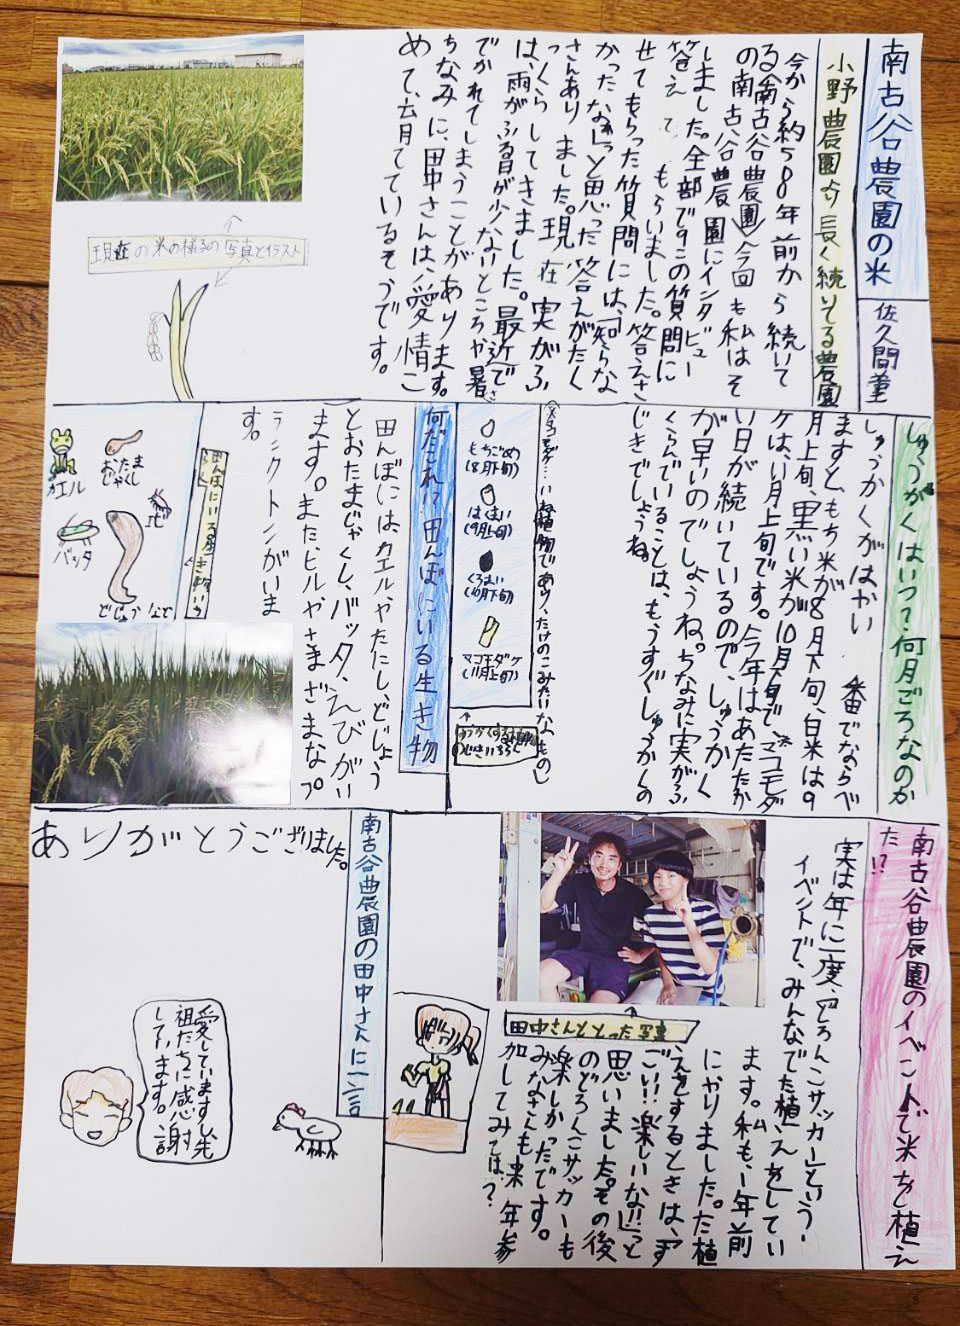 南古谷農園の米
佐久間
小野農園より長く続いてる農園
今から約500年前から続いて
る南古谷農園。今回も私はそ
の南古谷農園にインタビュー
しました。全部で9この質問に
答えて もらいました。答えさ
せてもらった質問には、「知らな
かったなぁ」っと思った答えがたく
さんありました。現在実がふ
っくらしてきました。最近で
は、雨がふる日が少ないところや暑さ
でかれてしまうことがあります。
ちなみに、田中さんは、愛情こ
めて、育てているそうです。
現在の米の様子の写真とイラスト
しゅうかくはいつ?何月ごろなのか
しゅうかくがはやい
番でならべ
ますと、もち米が8月下旬、白米は9
月上旬、黒い米が10月下旬で、マコモダ
ケは、11月上旬です。今年はあたたか
い日が続いているので、しゅうかく
が早いのでしょうね。ちなみに実がふ
くらんでいることは、もうすぐしゅうかくの
じきでしょうね。
※マコモダケ…いね植物であり、たけのこみたいなもの
もちごめ
(8月下旬)
はくまい
(9月上旬)
くろまい
(10月下旬)
マコモダケ
(11月上旬)
しゅうかくする植物
のじきいちらん
何だこれ!?田んぼにいる生き物
田んぼにはカエルやたにし、どじょう
とおたまじゃくし、バッタ、えびがい
ます。また、ヒルやさまざまなプ
ランクトンがいま
す。
田んぼにいる生き物いち
らん
カエル
おたま
じゃくし
バッタ
どじょうなど
南古谷農園のイベントで米を植え
た!?
実は年に一度、「どろんこサッカー」という
イベントで、みんなでた植えをしてい
ます。私も、一年前
にやりました。た植
えをするときは、「す
ごい!楽しいな!!」っと
思いました。その後
のどろんこサッカーも
楽しかったです。
みなさんも来年参
加してみては?
田中さんととった写真
南古谷農園の田中さんに一言
ありがとうございました。
愛しています。先
祖たちに感謝
しています。